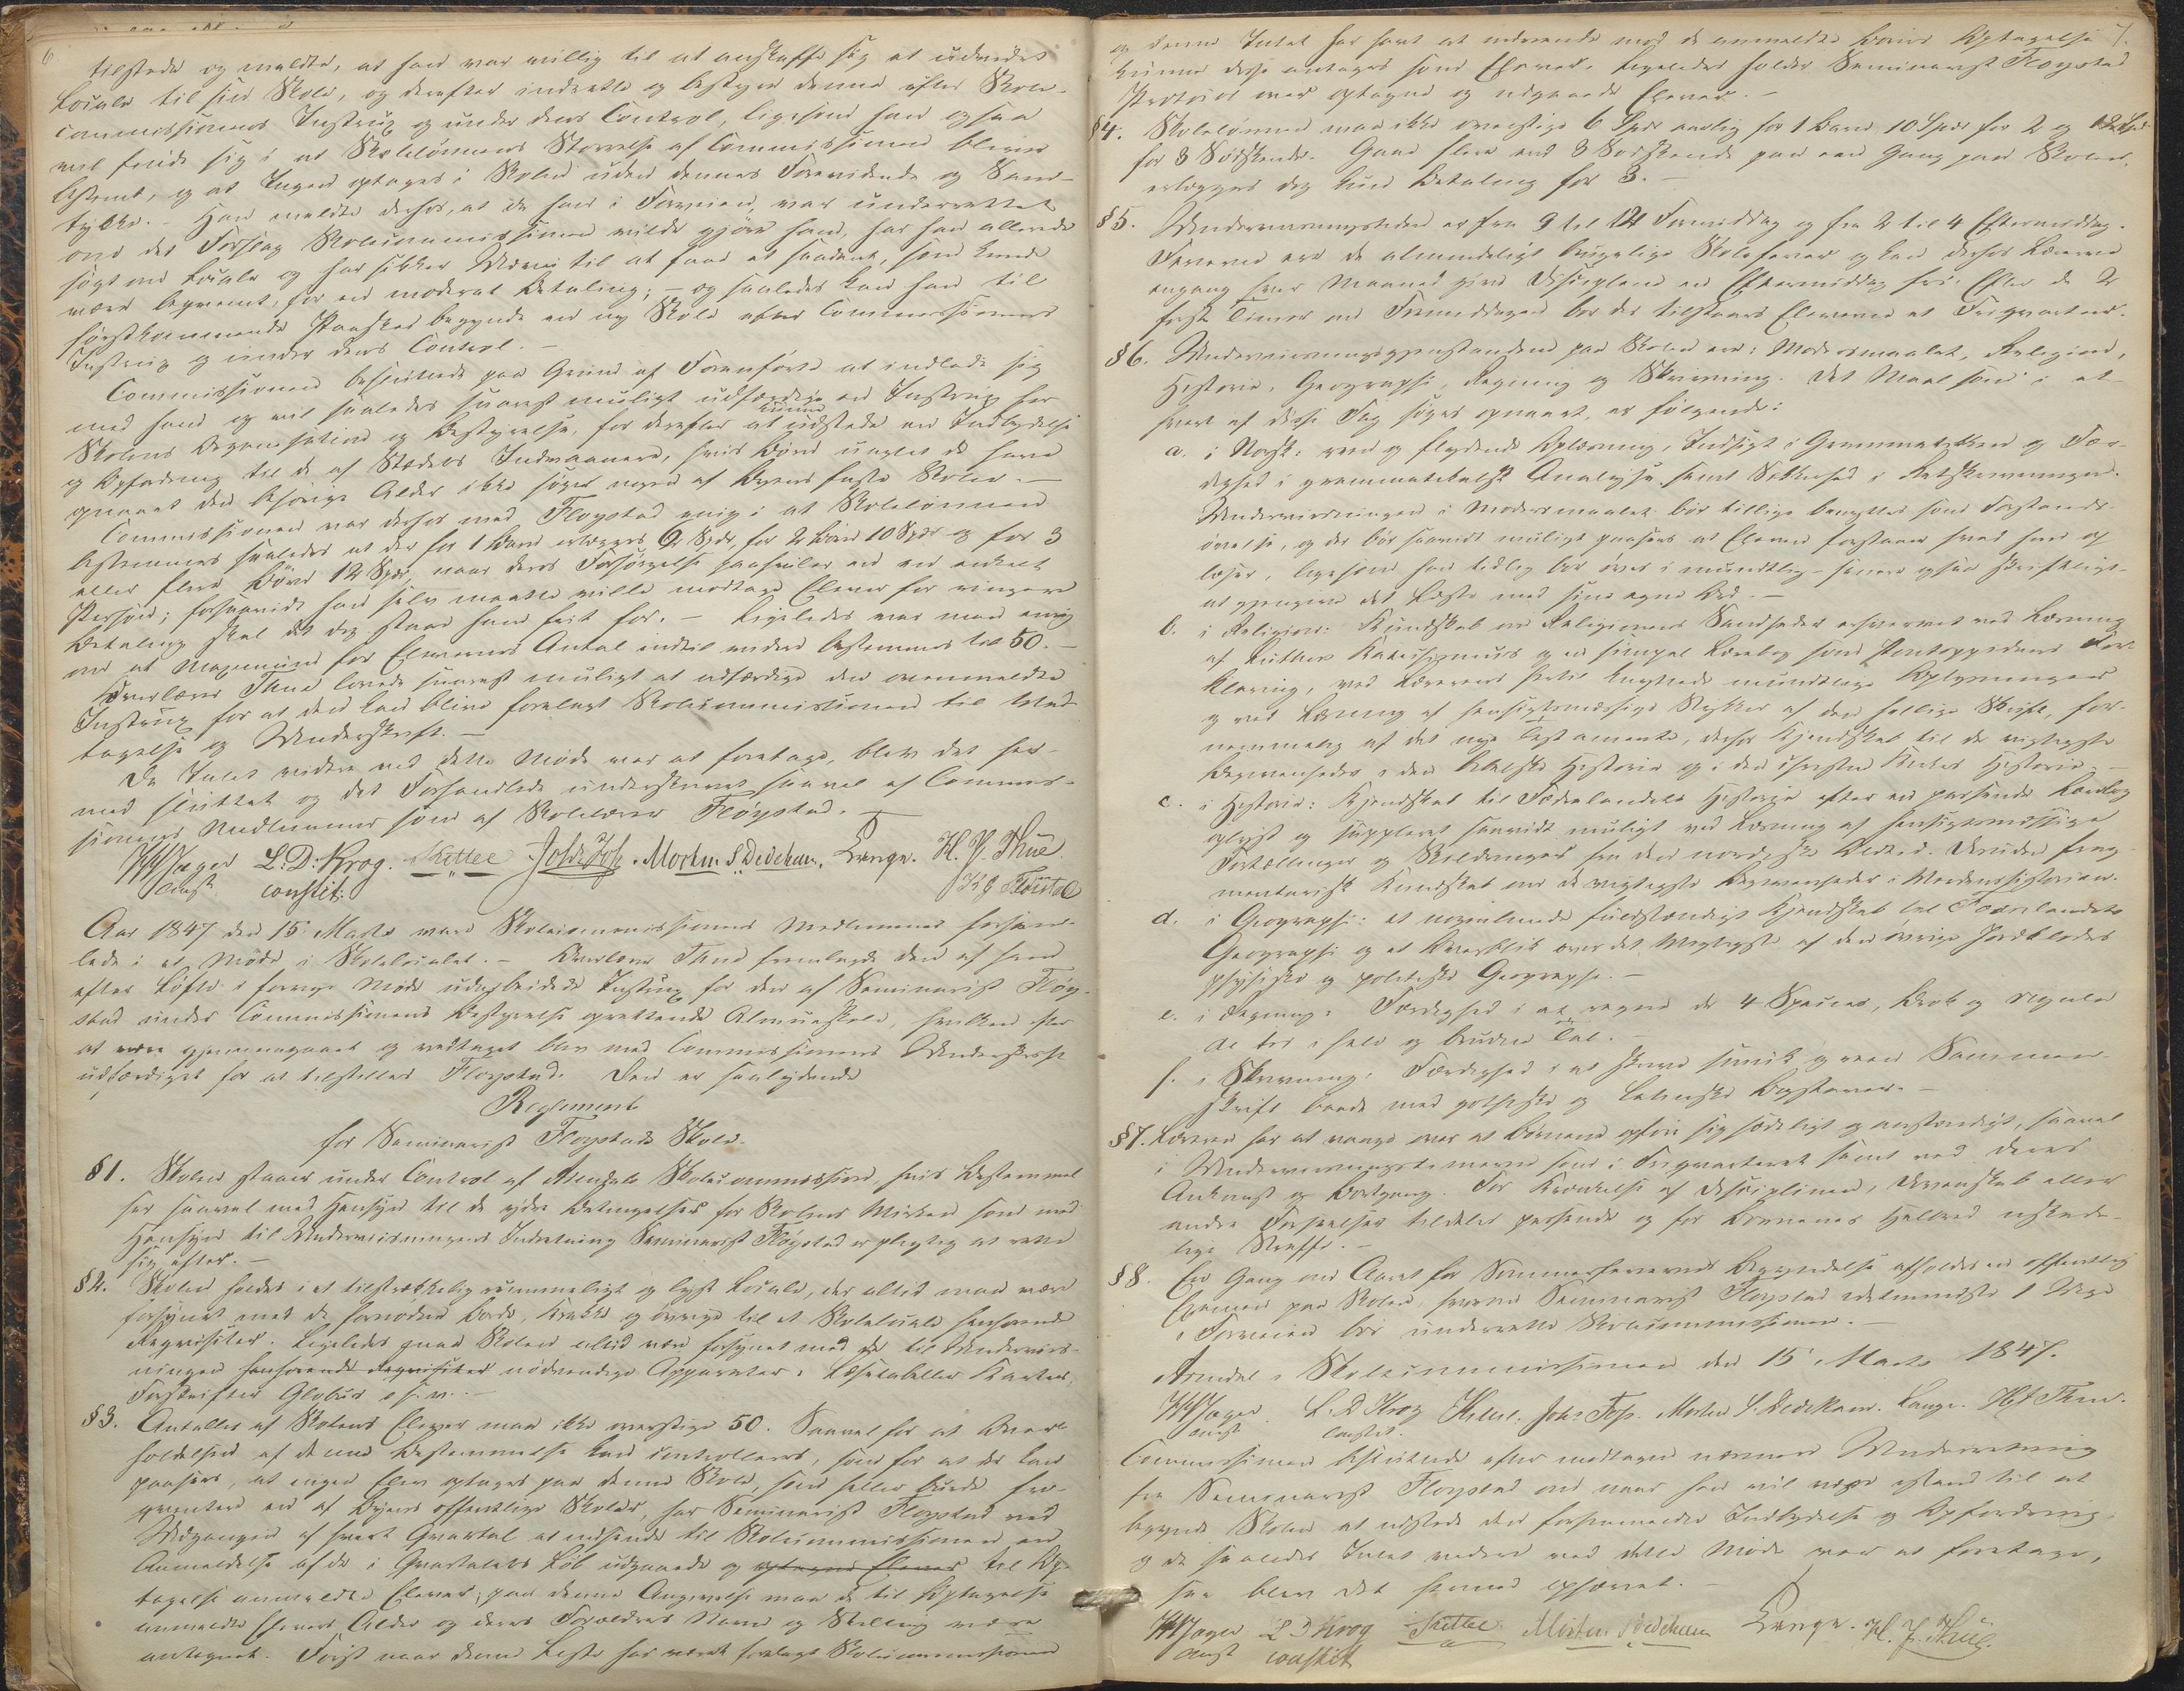 6
tilstede og meldte, at han var villig til at anskaffe sig et udvidet
Locale til sin Skole, og derefter indrette og bestyre denne efter Skole-
commissionens Instrux og under dens Control, ligesom han ogsaa
vil finde sig i at Skolelönnens Størrelse af Commissionen bliver
bestemt, og at Ingen optages i Skolen uden dennes Forevidende og Sam-
tykke. - Han meldte derhos, at da han i Forveien var underrettet
om det Forslag Skolecommissionen vilde gjöre ham, har han allerede
søgt om Locale og har sikker Udsigt til at faae et saadant, som kunde
være beqvemt, for en moderat Betaling; - og saaledes kan han til
førstkommende Paaske begynde en ny Skole efter Commissionens
Instrux og under dens Control. -
Commissionen besluttede paa Grund af Foranførte at indlade sig
med ham og vil saaledes snarest muligt udfærdige en Instrux for
Skolens Organisation og Bestyrelse, for derefter at kunne udstede en Indbydelse
og Opfordring til de af Stædets Indvaanere, hvis Børn uagtet de have
opnaaet den behørige Alder ikke søger nogen af Byens faste Skoler. -
Commissionen var derhos med Floystad enig i at Skolelönnen
bestemmes saaledes at der for 1 Barn erlægges 6 Spdr, for 2 Børn 10 Spdr og for 3
eller flere Börn 12 Spdr, naar deres Forsörgelse paahviler en og enkelt
Person; forsaavidt han selv maatte ville modtage Elever for ringere
Betaling skal det dog staae ham frit for. - Ligeledes var man enig
om at Maximum for Elevernes Antal indtil videre bestemmes til 50. -
Overlærer Thue lovede snarest muligt at udfærdige den ovenmeldte
Instrux for at den kan blive forelagt Skolecommissionen til Ved-
tagelse og Underskrift. -
Da Intet videre ved dette Møde var at foretage, blev det her-
med sluttet og det Forhandlede underskrevet saavel af Commis-
sionens Medlemmer som af Skolelærer Flöystad. -
Jager L. D. Krog. Kittel Johs Foss. Morten S Dedekam. Lange. H. J. Thue
const. constit.
Aar 1847 den 15 Marts vare Skolecommissionens Medlemmer forsam-
lede i et Möde i Skolelocalet. - Overlærer Thue fremlagde den af ham
efter Löfte i forrige Möde udarbeidede Instrux for den af Seminarist Flöy-
stad under Commissionens Bestyrelse oprettende Almueskole, hvilken efter
at være gjennemgaaet og vedtaget blev med Commissionens Underskrift
udfærdiget for at tilstilles Floystad. Den er saalydende
Reglement
for Seminarist Floystads Skole.
§1. Skolen staaer under Control af Arendals Skolecommission, hvis Bestemmel-
ser saavel med Hensyn til de ydre Betingelser for Skolens Virken som med
Hensyn til Underviisningens Indretning Seminarist Flöystad er pligtig at rette
sig efter. -
§2. Skolen holdes i et tilstrækkelig rummeligt og lyst Locale, der altid maa være
forsynet med de fornødne Borde, Bænke og övrige til et Skolelocale henhørende
Requisiter. Ligeledes maa Skolen altid være forsynet med de til Underviis-
ningen henhørende Requisiter nödvendige Apparater: Læsetabeller Karter,
Forskrifter Globus o.s.v. -
§3. Antallet af Skolens Elever maa ikke overstige 50. Saavel for at Over-
holdelsen af denne Bestemmelse kan controlleres, som for at det kan
paasees, at ingen Elev optages paa denne Skole, som heller burde fre-
qventere en af Byens offentlige Skoler, har Seminarist Floystad ved
Udgangen af hvert Qvartal at indsende til Skolecommissionen en
Anmeldelse af de i Qvartalets Löb udgaaede og optagne Elever til Op-
tagelse anmeldte Elever; paa denne Angivelse maa de til Optagelse
anmeldte Elevers Alder og deres Forældres Navn og Stilling være
antegnet. Først naar denne Liste har været forelagt Skolecommissionen
7.
og denne Intet har havt at indvende mod de anmeldte Börns Optagelse
kunne disse antages som Elever. Ligeledes holder Seminarist Floystad
Protocol over optagne og udgaaede Elever. -
§4. Skolelönnen maa ikke overstige 6 Spdr aarlig for 1 Barn 10 Spdr for 2 og 12 Spdr
for 3 Sødskende. Gaae flere end 3 Sødskende paa een Gang paa Skolen,
erlægges dog kun Betaling for 3. -
§5. Underviisningstiden er fra 9 til 12 Formiddag og fra 2 til 4 Eftermiddag.
Ferierne ere de almindeligt brugelige Skoleferier og kan derhos Læreren
engang hver Maaned give Disciplene en Eftermiddag fri. Efter de 2
første Timer om Formiddagen bør der tilstaaes Eleverne et Friqvarteer.
§6. Underviisningsgjenstandene paa Skolen ere: Modersmaalet, Religion,
Historie, Geographi, Regning og Skrivning. Det Maal som i et-
hvert af disse Fag søges opnaaet, er følgende:
a. i Norsk: reen og flydende Oplæsning, Indsigt i Grammatikken og Fær-
dighed i grammatikalsk Analyse samt Sikkerhed i Retskrivningen.
Underviisningen i Modersmaalet bör tillige benyttes som Forstands-
övelse, og der bör saavidt muligt paasees at Eleven forstaaer hvad han op-
læser, ligesom han tidlig bør øves i mundtlig - senere ogsaa skriftligt -
at gjengive det Læste med sine egne Ord. -
b. i Religion: Kundskab om Religionens Sandheder erhvervet ved Læsning
af Luthers Katechismus og en simpel Lærebog som Pontoppidans For-
klaring, ved Lærerens hertil knyttede mundtlige Oplysninger
og ved Læsning af hensigtsmæssige Stykker af den hellige Skrift, for-
nemmelig af det nye Testamente, derhos Kjendskab til de vigtigste
Begivenheder i den bibelske Historie og i den christne Kirkes Historie. -
c. i Historie: Kjendskab til Fædrelandets Historie efter en passende Lærebog
oplyst og suppleret saavidt muligt ved Læsning af hensigtsmæssige
Fortællinger og Skildringer fra den nordiske Oldtid. Desuden frag-
mentarisk Kundskab om de vigtigste Begivenheder i Verdenshistorien.
d. i Geographi: et nogenlunde fuldstændigt Kjendskab til Fædrelandets
Geographi og et Overblik over det Vigtigste af den øvrige Jordklodes
physiske og politiske Geographi. -
e. i Regning: Færdighed i at regne de 4 Species, Brök og regula
de tri i hele og brudne Tal. -
f. i Skrivning: Færdighed i at skrive smuk og reen Sammen-
skrift baade med gothiske og Latinske Bogstaver. -
§7. Læreren har at vaage over at Börnene opføre sig sædeligt og anstændigt, saavel
i Underviisningstimerne som i Friqvarteret samt ved deres
Ankomst og Bortgang. For Krænkelse af Disciplinen, Dovenskab eller
andre Forseelser tildeles passende og for Börnenes Helbred uskade-
lige Straffe. -
§8. En Gang om Aaret før Sommerferiernes Begyndelse afholdes en offentlig
Examen paa Skolen, hvorom Seminarist Floystad idetmindste 1 Uge
i Forveien bör underrette Skolecommissionen. -
Arendal i Skolecommissionen den 15 Marts 1847.
Jager L. D Krog Kittel. Johs Foss. Morten S. Dedekam. Lange. H J Thue.
const constit.
Commissionen besluttede efter modtagen nærmere Underretning
fra Seminarist Floystad om naar han vil være istand til at
begynde Skolen at udstede den forhenmeldte Indbydelse og Opfordring,
og da saaledes Intet videre ved dette Møde var at foretage,
saa blev det hermed ophævet. -
Jager L D Krog Kittel Morten S Dedekam Lange. H. J. Thue.
const constit